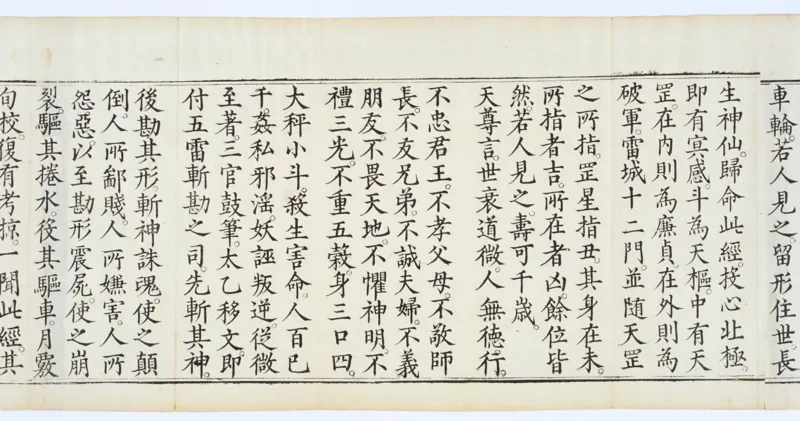 車輪。若人見之。留形住世。長
生神仙。歸命此經。投心北極。
即有冥感。斗為天樞。中有天
罡。在內則為廉貞。在外則為
破軍。雷城十二門。並随天罡
之所指。罡星指丑。其身在未。
所指者吉。所在者凶。餘位皆
然。若人見之。壽可千歲。
天尊言。世衰道微。人無德行。
不忠君王。不孝父母。不敬師
長。不友兄弟。不誠夫婦。不義
朋友。不畏天地。不懼神明。不
禮三光。不重五穀。身三口四。
大秤小斗。殺生害命。人百已
千。姦私邪滛。妖誣叛逆。從微
至著。三官鼓筆。太乙移文。即
付五雷斬勘之司。先斬其神。
後勘其形。斬神誅魂。使之顛
倒。人所鄙賤。人所嫌害。人所
怨惡。以至勘形震屍。使之崩
裂。驅其捲水。役其驅車。月覈
旬校。復有考掠。一聞此經。其